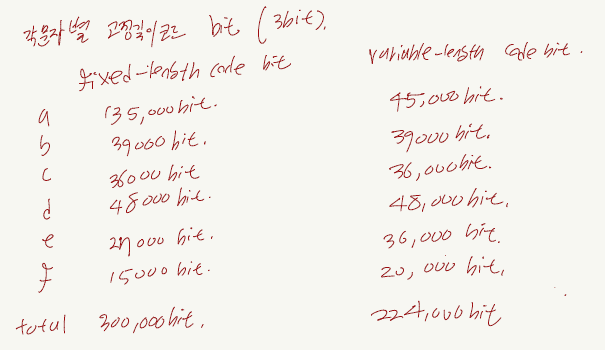 각문자별 고정길이코드 bit (3bit).
fixed-length code bit variable-length code bit.
a 135,000bit. 45,000bit.
b 39000bit. 39000bit.
c 36000bit 36,000bit.
d 48000bit. 48,000bit.
e 27000bit. 36,000bit.
f 15000bit. 20,000bit.
total 300,000bit. 224,000bit